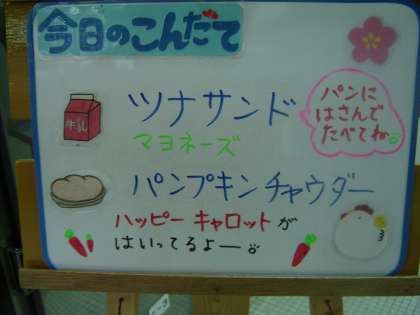 今日のこんだて
牛乳
ツナサンド
マヨネーズ
パンに
はさんで
たべてね
パンプキンチャウダー
ハッピーキャロットが
はいってるよー